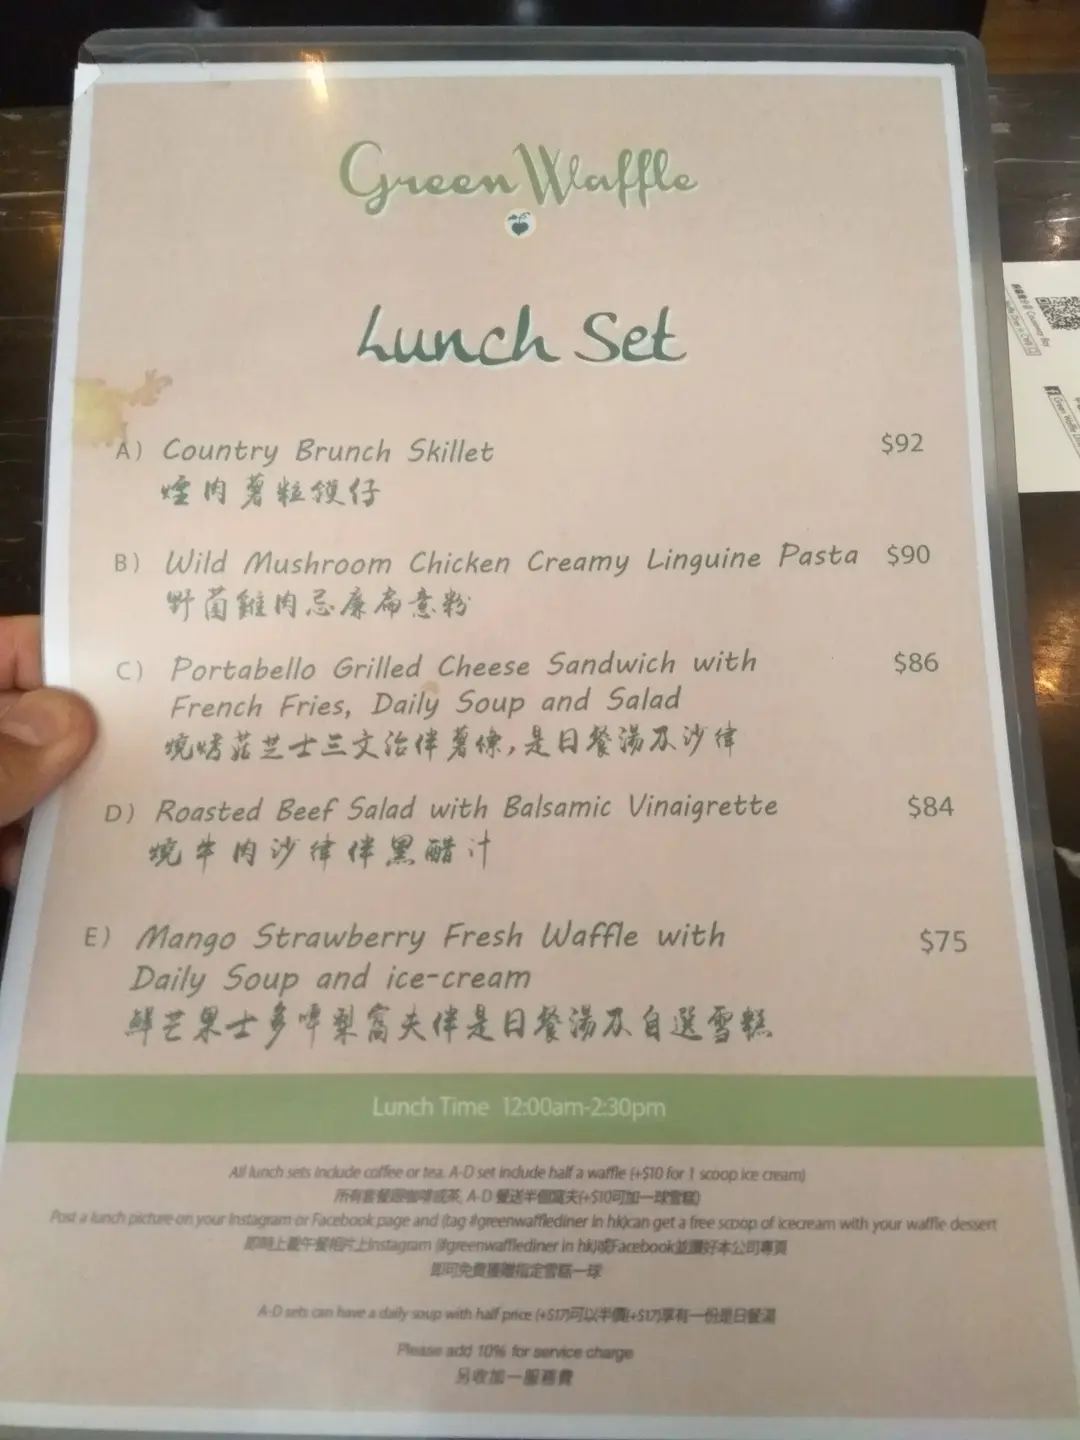 Green Waffle
Lunch Set
A) Country Brunch Skillet $92
煙肉薯粒鑊仔
B) Wild Mushroom Chicken Creamy Linguine Pasta $90
野菌雞肉忌廉扁意粉
C) Portabello Grilled Cheese Sandwich with $86
French Fries, Daily Soup and Salad
燒烤菇芝士三文治伴薯條,是日餐湯及沙律
D) Roasted Beef Salad with Balsamic Vinaigrette $84
燒牛肉沙律伴黑醋汁
E) Mango Strawberry Fresh Waffle with $75
Daily Soup and ice-cream
鮮芒果士多啤梨窩夫伴是日餐湯及自選雪糕
Lunch Time 12:00am-2:30pm
All lunch sets include coffee or tea. A-D set include half a waffle (+$10 for 1 scoop ice cream)
所有套餐跟咖啡或茶, A-D 餐送半個窩夫(+$10可加一球雪糕)
Post a lunch picture on your Instagram or Facebook page and (tag #greenwafflediner in hk)can get a free scoop of icecream with your waffle dessert
即時上載午餐相片上Instagram (#greenwafflediner in hk)或Facebook並讚好本公司專頁
即可免費獲贈指定雪糕一球
A-D sets can have a daily soup with half price (+$17)可以半價(+$17)享有一份是日餐湯
Please add 10% for service charge
另收加一服務費